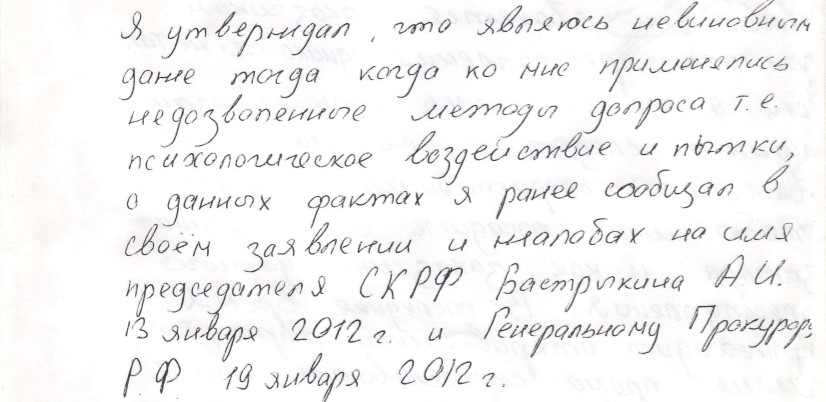 Я утверждал, что являюсь невиновным
даже тогда когда ко мне применялись
недозволенные методы допроса т.е.
психологическое воздействие и пытки,
о данных фактах я ранее сообщал в
своём заявлении и жалобах на имя
председателя СКРФ Бастрыкина А.И.
13 января 2012 г. и Генеральному Прокурору
РФ 19 января 2012 г.